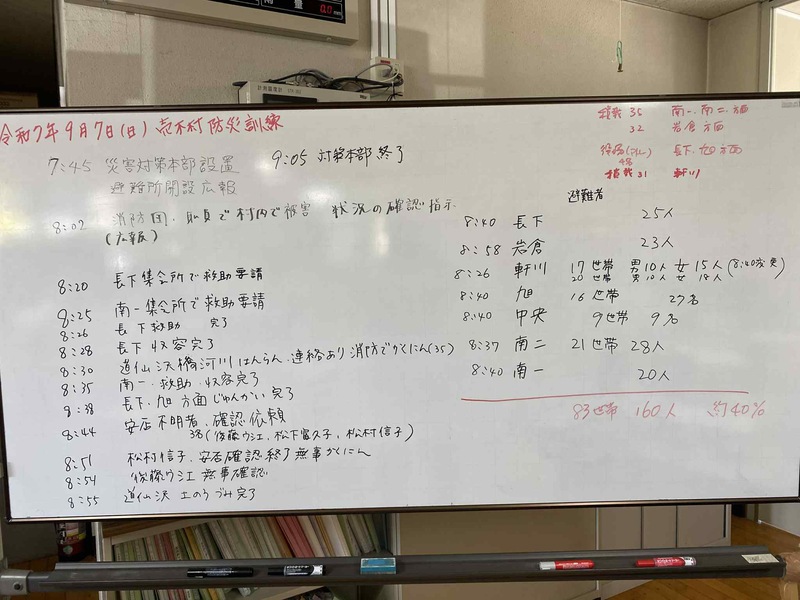 雨量 0.0 mm
計測震度計
令和7年9月7日(日) 売木村防災訓練
7:45 災害対策本部設置 9:05 対策本部終了
避難所開設広報
8:02 消防団、職員で村内で被害 状況の確認指示
(広報)
8:20 長下集会所で救助要請
8:25 南一集会所で救助要請
8:26 長下救助 完了
8:28 長下収容完了
8:30 道仏沢橋河川はんらん、連絡あり消防でかくにん(35)
8:35 南一、救助、収容完了
8:38 長下、旭方面じゅんかい完了
8:44 安否不明者、確認依頼
3名(後藤ウシエ、松下富久子、松村信子)
8:51 松村信子、安否確認終了無事かくにん
8:54 後藤ウシエ無事確認
8:55 道仏沢 土のうづみ完了
積載 35 南一、南二方面
32 岩倉方面
役場 長下、旭方面
4名
積載31 軒川
避難者
8:40 長下 25人
8:58 岩倉 23人
8:26 軒川 17世帯 男10人 女15人 (8:40変更)
20世帯 男10人 女18人
8:40 旭 16世帯 27名
8:40 中央 9世帯 9名
8:37 南二 21世帯 28人
8:40 南一 20人
83世帯 160人 約40%